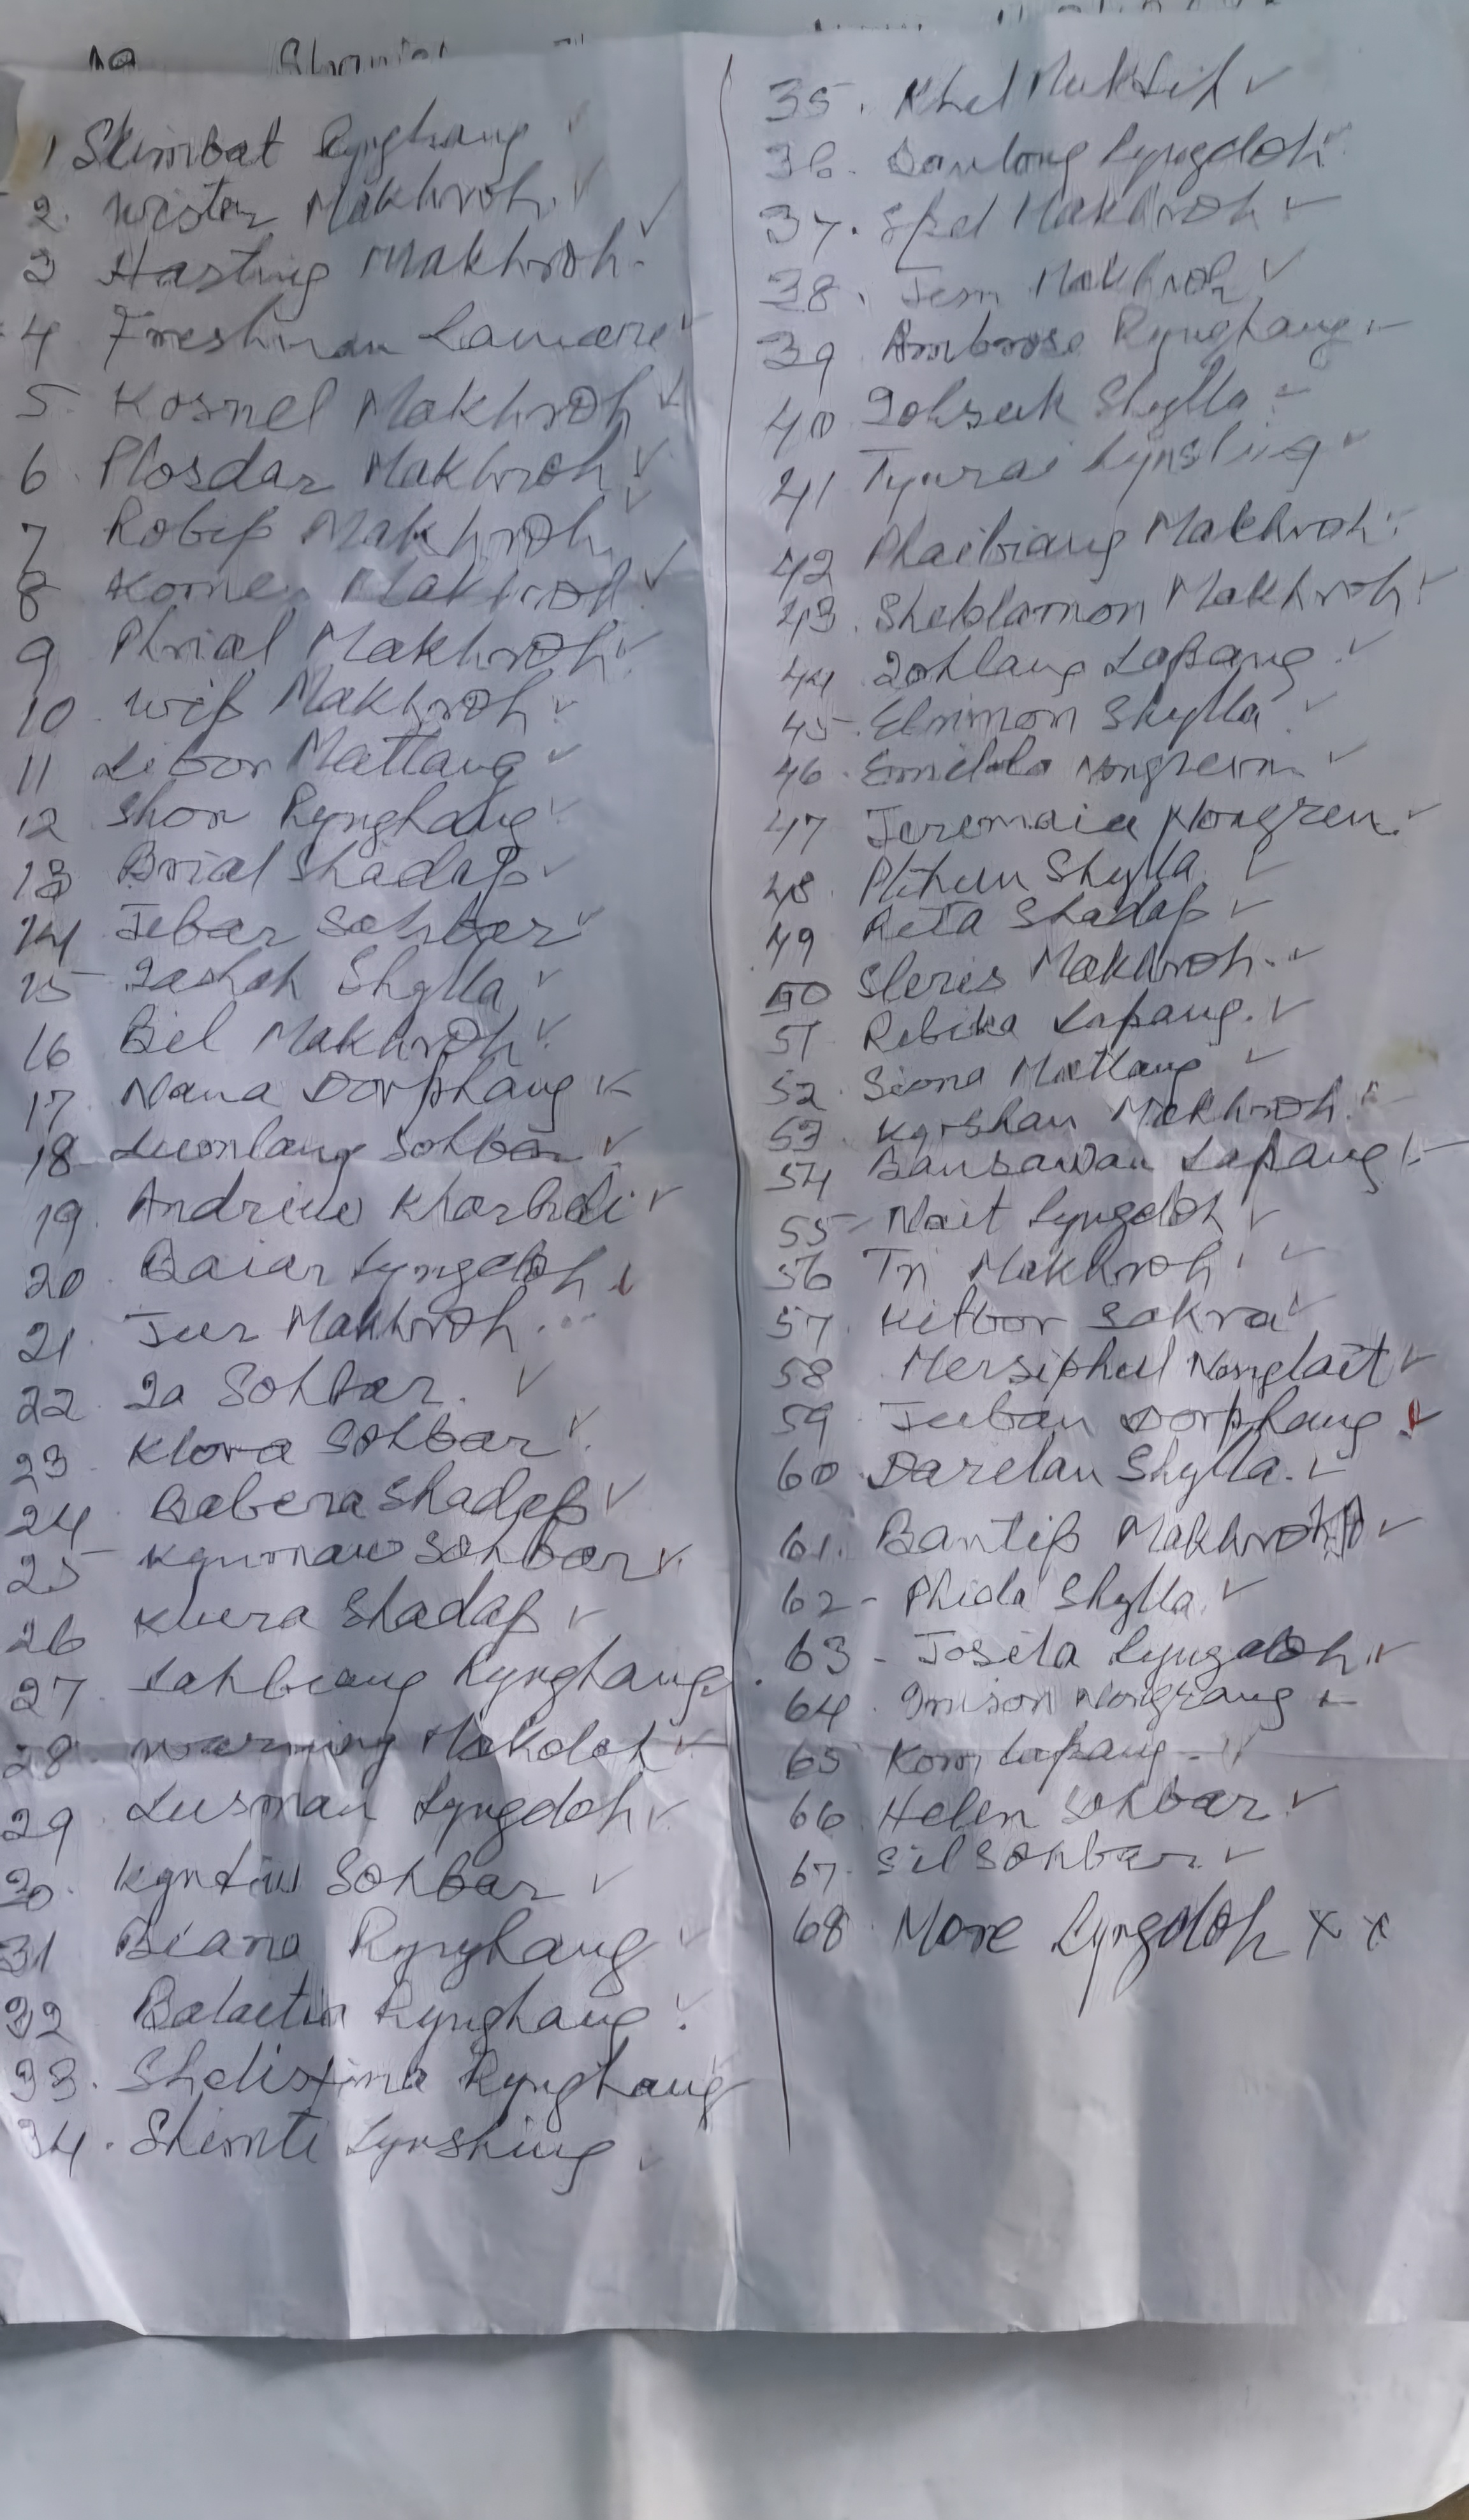 1 Skimbat Rynghang
2. Wister Makhroh.
3 Hasting Makhroh.
4. Freshman Lamare
5. Kosnel Makhroh
6. Plosdar Makhroh
7 Robip Makhroh
8 Korne Makhroh
9 Phrial Makhroh
10. Wip Makhroh
11 Libor Mattang
12 Shon Rynghang
13 Brial Shadap
14 Jebar Sohbar
15 Iashah Shylla
16 Biel Makhroh
17. Nana Dorphang
18 Lumlang Sohbar
19. Andrew Kharbudi
20. Baiar Lyngdoh
21. Jur Makhroh.
22. Ia Sohbar.
23. Klora Sohbar
24. Babera Shadap
25 Kynmaw Sohbar
26 Kwera Shadap
27. Lahbiang Rynghang
28. Warning Mokdoh
29. Lusman Lyngdoh
30. Kyntiw Sohbar
31 Biana Rynghang
32 Balaetin Rynghang
33. Shelistina Rynghang
34. Shemti Lynshing
35. Khel Muktih
36. Donlong Lyngdoh
37. Spel Makhroh
38. Jem Makhroh
39 Ambrose Rynghang
40 Iohsuk Shylla
41 Tyurai Lynshing
42 Phaibiang Makhroh
43. Sheblamon Makhroh
44 Iohlang Lapang
45. Elnimon Shylla
46. Emidola Nongrem
47 Jeremaia Nongren.
48. Plihun Shylla
49 Rita Shadap
50 Sleris Makhroh.
51 Rebika Lapang.
52. Siona Mattang
53. Kyrshan Makhroh.
54 Bansawan Lapang
55 Nait Lyngdoh
56 Tri Makhroh
57. Kitbor Sakra
58 Mersiphul Nonglait
59. Juban Dorphang
60. Darelan Shylla.
61. Bantip Makhroh
62- Phida Shylla
63 - Josila Lyngdoh
64. Imison Nongrang
65 Kom Lapang
66. Helen Sohbar.
67. Sil Sohbar.
68. More Lyngdoh x x